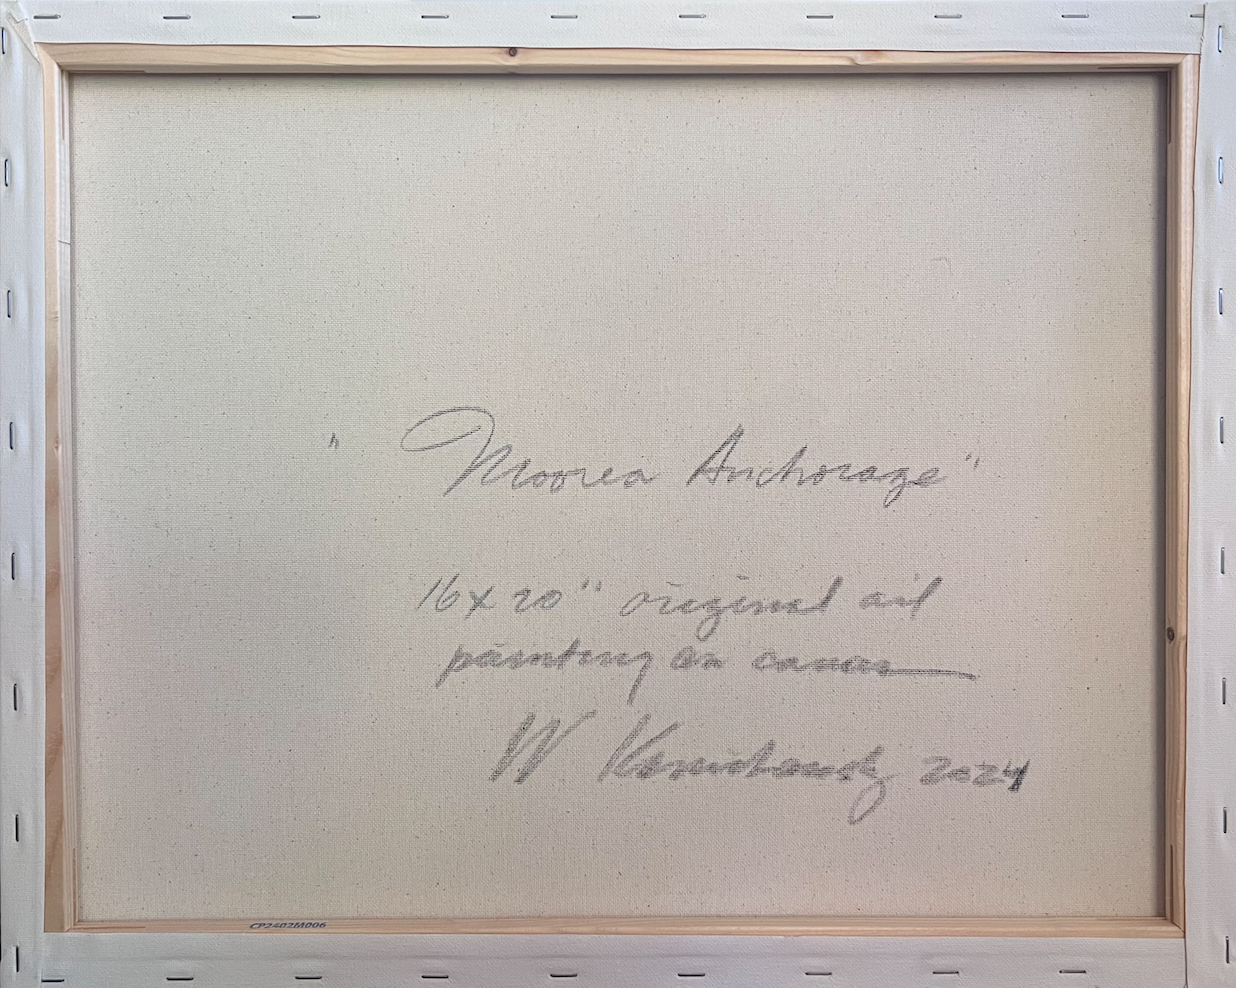 "Moorea Anchorage"
16 x 20" original oil
painting on canvas
W 2024
CP2402M006